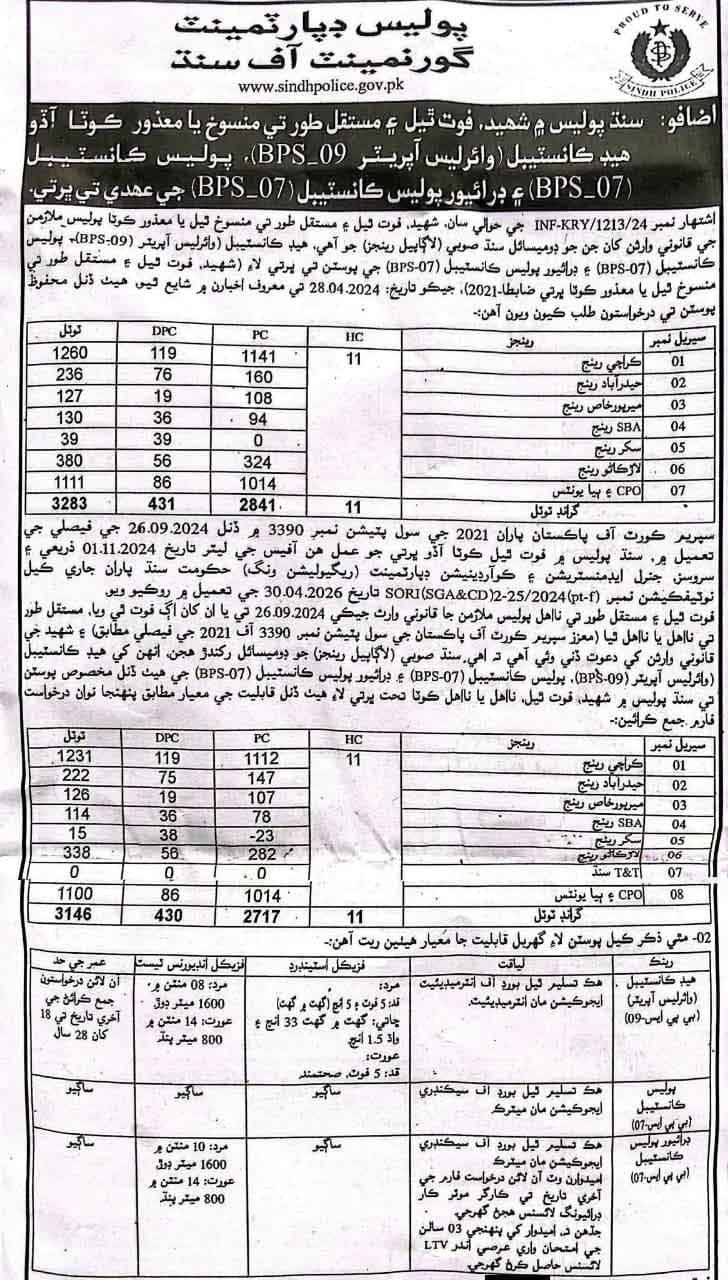 پوليس ڊپارٽمينٽ
گورنمينٽ آف سنڌ
www.sindhpolice.gov.pk
PROUD TO SERVE
SINDH POLICE
اضافو: سنڌ پوليس ۾ شهيد، فوت ٿيل ۽ مستقل طور تي منسوخ يا معذور ڪوٽا آڌو
هيڊ ڪانسٽيبل (وائرليس آپريٽر BPS_09)، پوليس ڪانسٽيبل
(BPS_07) ۽ ڊرائيور پوليس ڪانسٽيبل (BPS_07) جي عهدي تي ڀرتي.
اشتهار نمبر INF-KRY/1213/24 جي حوالي سان، شهيد، فوت ٿيل ۽ مستقل طور تي منسوخ ٿيل يا معذور ڪوٽا پوليس ملازمن
جي قانوني وارثن کان جن جو ڊوميسائل سنڌ صوبي (لاڳاپيل رينجز) جو آهي، هيڊ ڪانسٽيبل (وائرليس آپريٽر) (BPS-09)، پوليس
ڪانسٽيبل (BPS-07) ۽ ڊرائيور پوليس ڪانسٽيبل (BPS-07) جي پوسٽن تي ڀرتي لاءِ (شهيد، فوت ٿيل ۽ مستقل طور تي
منسوخ ٿيل يا معذور ڪوٽا ڀرتي ضابطا-2021)، جيڪو تاريخ: 28.04.2024 تي معروف اخبارن ۾ شايع ٿيو، هيٺ ڏنل محفوظ
پوسٽن تي درخواستون طلب ڪيون ويون آهن:-
سيريل نمبر رينجز HC PC DPC ٽوٽل
01 ڪراچي رينج 11 1141 119 1260
02 حيدرآباد رينج 160 76 236
03 ميرپورخاص رينج 108 19 127
04 SBA رينج 94 36 130
05 سکر رينج 0 39 39
06 لاڙڪاڻو رينج 324 56 380
07 CPO ۽ ٻيا يونٽس 1014 86 1111
گرانڊ ٽوٽل 11 2841 431 3283
سپريم ڪورٽ آف پاڪستان پاران 2021 جي سول پٽيشن نمبر 3390 ۾ ڏنل 26.09.2024 جي فيصلي جي
تعميل ۾، سنڌ پوليس ۾ فوت ٿيل ڪوٽا آڌو ڀرتي جو عمل هن آفيس جي ليٽر تاريخ 01.11.2024 ذريعي ۽
سروسز جنرل ايڊمنسٽريشن ۽ ڪوآرڊينيشن ڊپارٽمينٽ (ريگيوليشن ونگ) حڪومت سنڌ پاران جاري ڪيل
نوٽيفڪيشن نمبر SORI(SGA&CD)2-25/2024(pt-f) تاريخ 30.04.2026 جي تعميل ۾ روڪيو ويو.
فوت ٿيل ۽ مستقل طور تي نااهل پوليس ملازمن جا قانوني وارث جيڪي 26.09.2024 تي يا ان کان اڳ فوت ٿي ويا، مستقل طور
تي نااهل يا نااهل ٿيا (معزز سپريم ڪورٽ آف پاڪستان جي سول پٽيشن نمبر 3390 آف 2021 جي فيصلي مطابق) ۽ شهيد جي
قانوني وارثن کي دعوت ڏني وئي آهي ته اهي سنڌ صوبي (لاڳاپيل رينجز) جو ڊوميسائل رکندڙ هجن، انهن کي هيڊ ڪانسٽيبل
(وائرليس آپريٽر) (BPS-09)، پوليس ڪانسٽيبل (BPS-07) ۽ ڊرائيور پوليس ڪانسٽيبل (BPS-07) جي هيٺ ڏنل مخصوص پوسٽن
تي سنڌ پوليس ۾ شهيد، فوت ٿيل، نااهل يا نااهل ڪوٽا تحت ڀرتي لاءِ هيٺ ڏنل قابليت جي معيار مطابق پنهنجا نوان درخواست
فارم جمع ڪرائين:-
سيريل نمبر رينجز HC PC DPC ٽوٽل
01 ڪراچي رينج 11 1112 119 1231
02 حيدرآباد رينج 147 75 222
03 ميرپورخاص رينج 107 19 126
04 SBA رينج 78 36 114
05 سکر رينج -23 38 15
06 لاڙڪاڻو رينج 282 56 338
07 T&T سنڌ 0 0 0
08 CPO ۽ ٻيا يونٽس 1014 86 1100
گرانڊ ٽوٽل 11 2717 430 3146
02- مٿي ذڪر ڪيل پوسٽن لاءِ گهربل قابليت جا معيار هيٺين ريت آهن:-
رينڪ لياقت فزيڪل اسٽينڊرڊ فزيڪل انڊيورنس ٽيسٽ عمر جي حد
هيڊ ڪانسٽيبل
(وائرليس آپريٽر)
(بي پي ايس-09)
هڪ تسليم ٿيل بورڊ آف انٽرميڊيئيٽ
ايجوڪيشن مان انٽرميڊيئيٽ.
مرد:
قد: 5 فوٽ ۽ 5 انچ (گهٽ ۾ گهٽ)
ڇاتي: گهٽ ۾ گهٽ 33 انچ ۽
واڌ 1.5 انچ
عورت:
قد: 5 فوٽ، صحتمند
مرد: 08 منٽن ۾
1600 ميٽر ڊوڙ
عورت: 14 منٽن ۾
800 ميٽر پنڌ
آن لائن درخواستون
جمع ڪرائڻ جي
آخري تاريخ تي 18
کان 28 سال
پوليس
ڪانسٽيبل
(بي پي ايس-07)
هڪ تسليم ٿيل بورڊ آف سيڪنڊري
ايجوڪيشن مان ميٽرڪ
ساڳيو
ساڳيو
ساڳيو
ڊرائيور پوليس
ڪانسٽيبل
(بي پي ايس-07)
هڪ تسليم ٿيل بورڊ آف سيڪنڊري
ايجوڪيشن مان ميٽرڪ
اميدوارن وٽ آن لائن درخواست فارم جي
آخري تاريخ تي ڪارگر موٽر ڪار
ڊرائيونگ لائسنس هجڻ گهرجي.
جڏهن ته اميدوار کي پنهنجي 03 سالن
جي امتحان واري عرصي اندر LTV
لائسنس حاصل ڪرڻ گهرجي.
ساڳيو
مرد: 10 منٽن ۾
1600 ميٽر ڊوڙ
عورت: 14 منٽن ۾
800 ميٽر پنڌ
ساڳيو